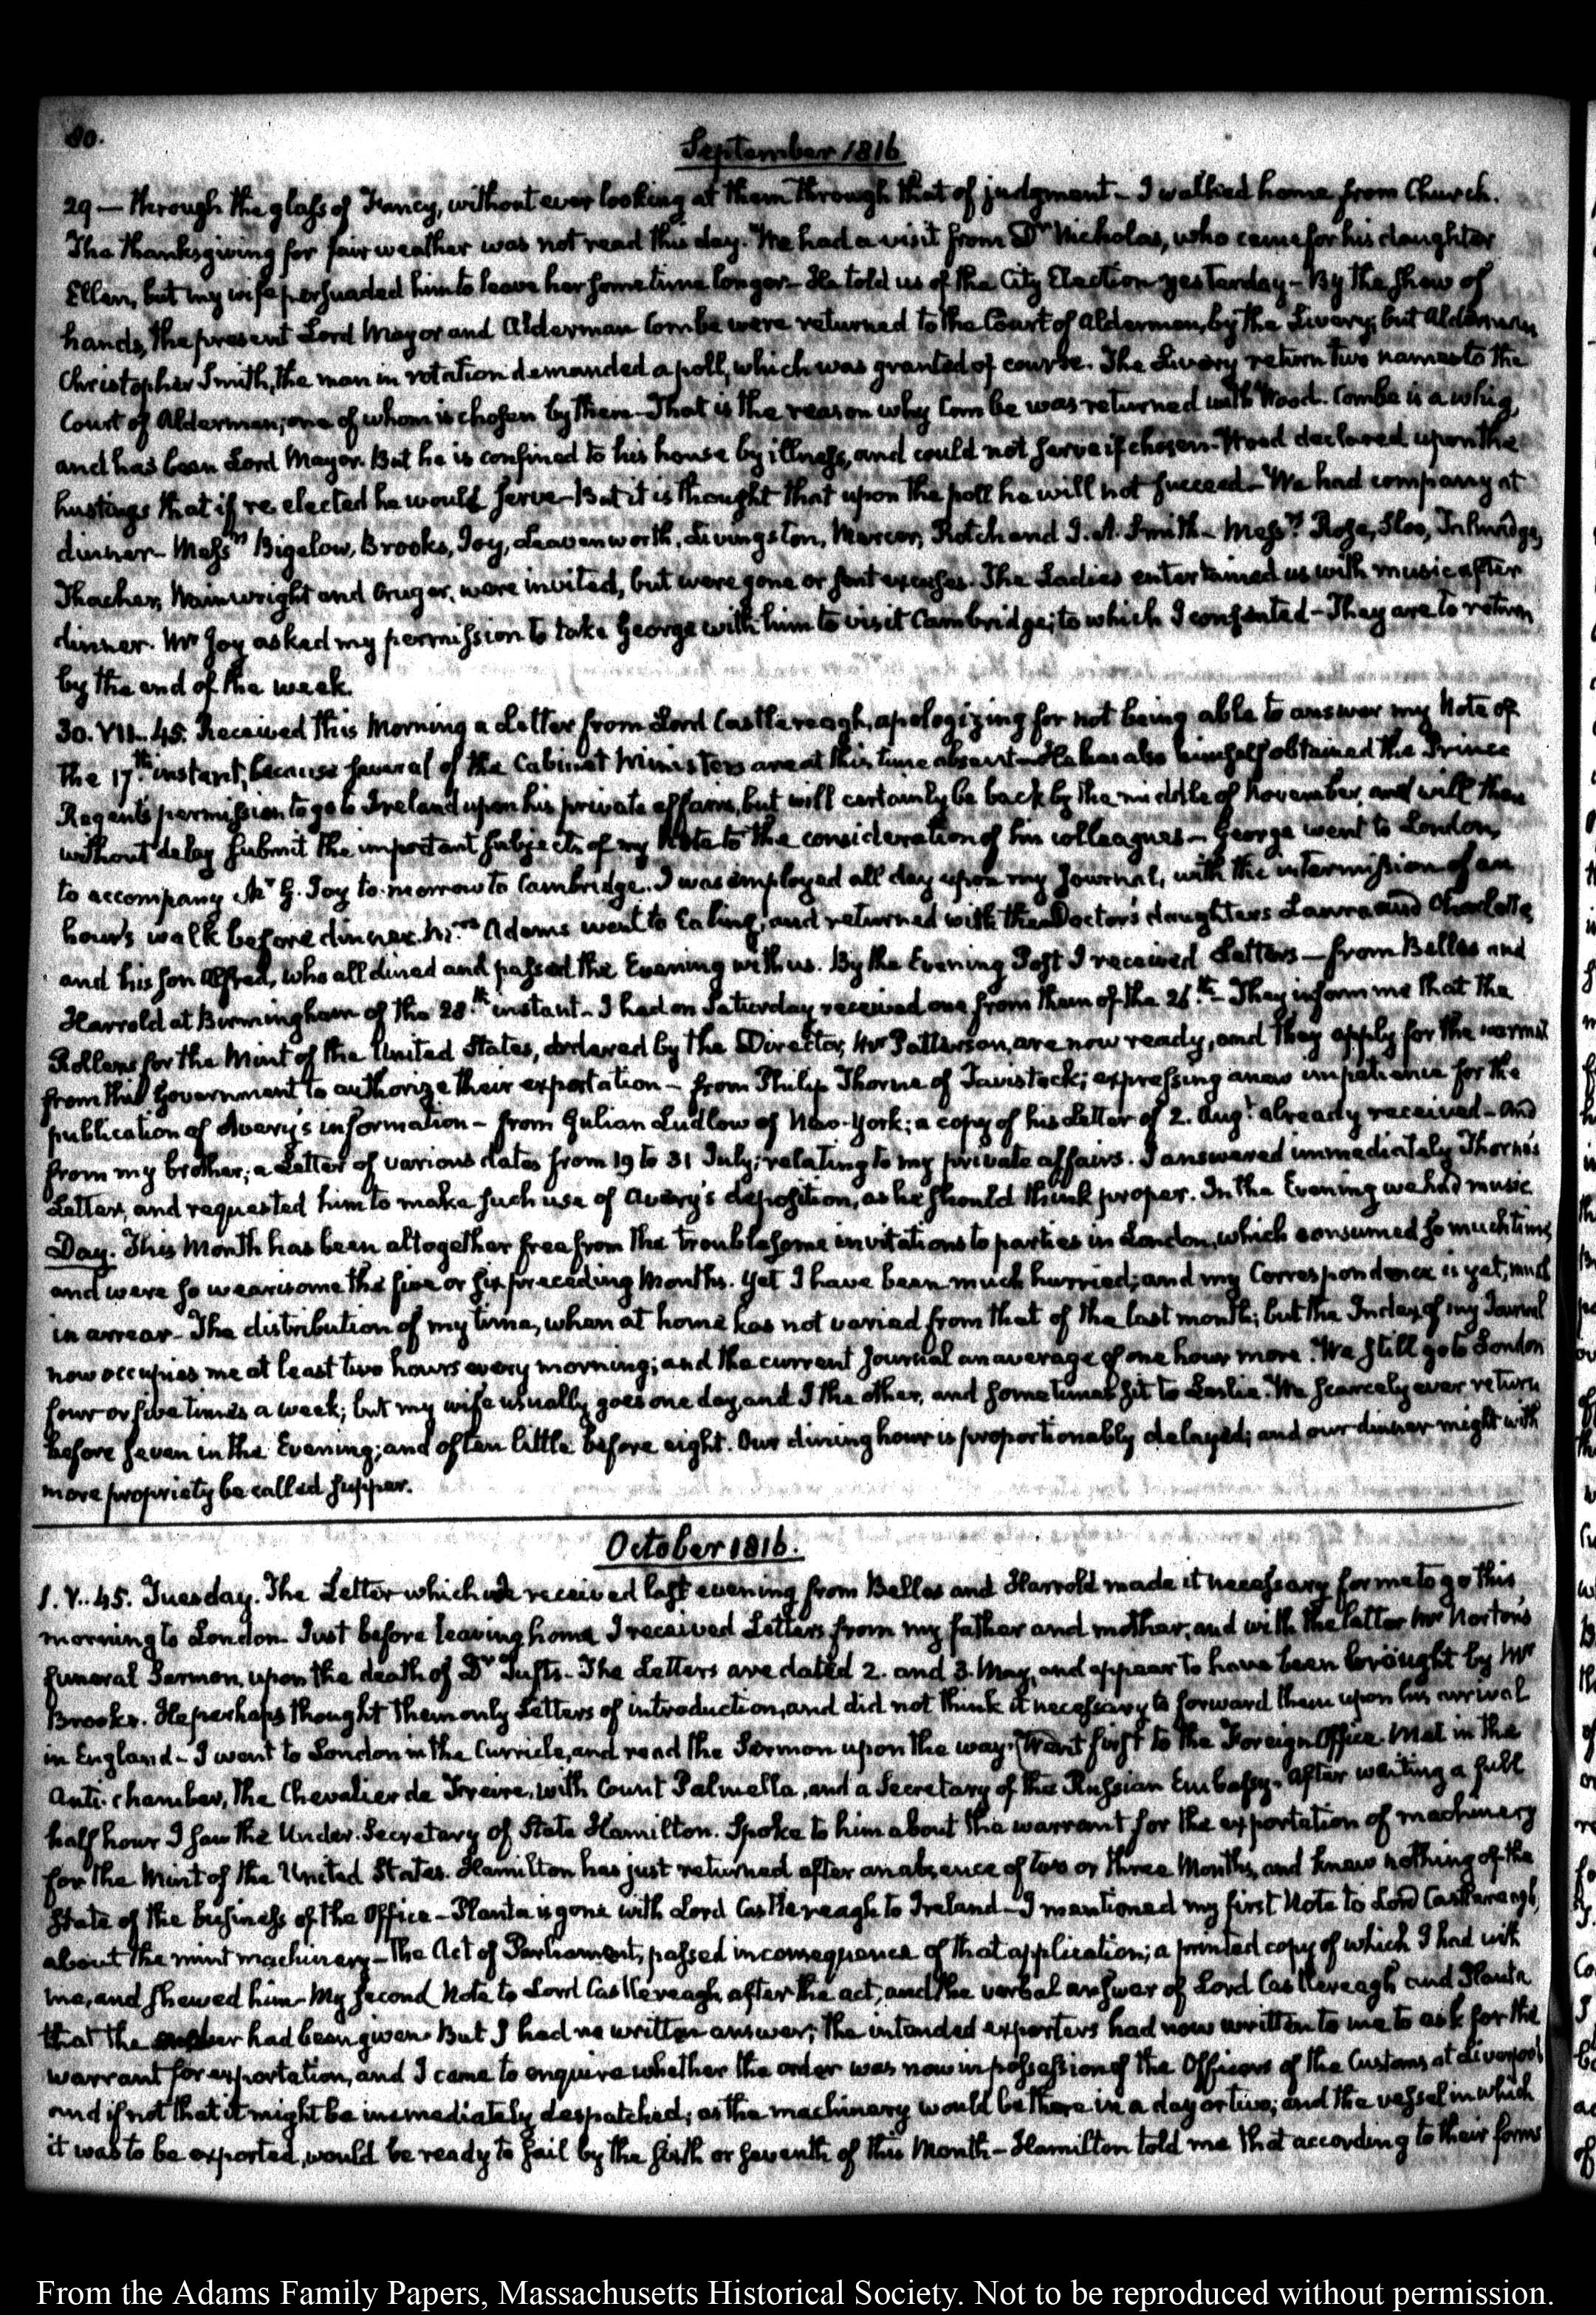 80.
September 1816
29 — through the glass of Fancy, without ever looking at them through that of judgment – I walked home from Church.
The thanksgiving for fair weather was not read this day. We had a visit from Dr Nicholas, who came for his daughter
Ellen, but my wife persuaded him to leave her some time longer – He told us of the City Election yesterday – By the shew of
hands, the present Lord Mayor and Alderman Combe were returned to the Court of Aldermen, by the Livery; but Alderman
Christopher Smith, the man in rotation demanded a poll, which was granted of course. The Livery return two names to the
Court of Aldermen; one of whom is chosen by them – That is the reason why Combe was returned with Wood. Combe is a whig,
and has been Lord Mayor. But he is confined to his house by illness, and could not serve if chosen. Wood declared upon the
hustings that if re elected he would serve – But it is thought that upon the poll he will not succeed – We had company at
dinner – Messrs Bigelow, Brooks, Joy, Leavenworth, Livingston, Mercer, Rotch and J. A. Smith – Messrs Rose, Sloo,
Thacher, Wainwright and Cruger, were invited, but were gone or sent excuses. The Ladies entertained us with music after
dinner. Mr Joy asked my permission to take George with him to visit Cambridge; to which I consented – They are to return
by the end of the week.
30. VII..45. Received this Morning a Letter from Lord Castlereagh, apologizing for not being able to answer my Note of
the 17th instant, because several of the Cabinet Ministers are at this time absent – He has also himself obtained the Prince
Regent's permission to go to Ireland upon his private affairs, but will certainly be back by the middle of November, and will then
without delay submit the important subjects of my Note to the consideration of his colleagues – George went to London,
to accompany Mr G. Joy to-morrow to Cambridge. I was employed all day upon my Journal, with the intermission of an
hour's walk before dinner. Mrs Adams went to Ealing, and returned with the Doctor's daughters Laura and Charlotte,
and his son Alfred, who all dined and passed the Evening with us. By the Evening Post I received Letters – from Belles and
Harrold at Birmingham of the 28th instant – I had on Saturday received one from them of the 26th – They inform me that the
Rollers for the Mint of the United States, ordered by the Director, Mr Patterson, are now ready, and they apply for the warrant
from this Government to authorize their exportation – from Philip Thorne of Tavistock; expressing anew impatience for the
publication of Avery's information – from Gulian Ludlow of New-York; a copy of his Letter of 2. Augt already received – And
from my brother; a Letter of various dates from 19 to 31 July; relating to my private affairs. I answered immediately Thorne's
Letter, and requested him to make such use of Avery's deposition, as he should think proper. In the Evening we had music
Day. This Month has been altogether free from the troublesome invitations to parties in London, which consumed so much time,
and were so wearisome the five or six preceding Months. Yet I have been much hurried; and my Correspondence is yet, much
in arrear – The distribution of my time, when at home has not varied from that of the last month; but the Index of my Journal
now occupies me at least two hours every morning; and the current Journal an average of one hour more. We still go to London
four or five times a week; but my wife usually goes one day, and I the other, and sometimes sit to Leslie. We scarcely ever return
before seven in the Evening; and often little before eight. Our dining hour is proportionably delayed; and our dinner might with
more propriety be called supper.
October 1816.
1. V..45. Tuesday. The Letter which we received last evening from Belles and Harrold made it necessary for me to go this
morning to London. Just before leaving home I received Letters from my father and mother, and with the latter Mr Norton's
funeral Sermon, upon the death of Dr Tufts – The Letters are dated 2. and 3. May, and appear to have been brought by Mr
Brooks. He perhaps thought them only Letters of introduction, and did not think it necessary to forward them upon his arrival
in England – I went to London in the Curricle, and read the Sermon upon the way. Went first to the Foreign Office. Met in the
Anti-chamber, the Chevalier de Freire, with Count Palmella, and a Secretary of the Russian Embassy. After waiting a full
half hour I saw the Under-Secretary of State Hamilton. Spoke to him about the warrant for the exportation of machinery
for the Mint of the United States. Hamilton has just returned after an absence of two or three Months, and knew nothing of the
state of the business of the Office – Planta is gone with Lord Castlereagh to Ireland – I mentioned my first Note to Lord Castlereagh,
about the mint machinery – The Act of Parliament, passed in consequence of that application; a printed copy of which I had with
me, and shewed him – My second Note to Lord Castlereagh, after the act, and the verbal answer of Lord Castlereagh and Planta
that the had been given. But I had no written answer; the intended exporters had now written to me to ask for the
warrant for exportation, and I came to enquire whether the order was now in possession of the Officers of the Customs at Liverpool
and if not that it might be immediately despatched; as the machinery would be there in a day or two; and the vessel in which
it was to be exported, would be ready to sail by the sixth or seventh of this Month – Hamilton told me that according to their forms
From the Adams Family Papers, Massachusetts Historical Society. Not to be reproduced without permission.